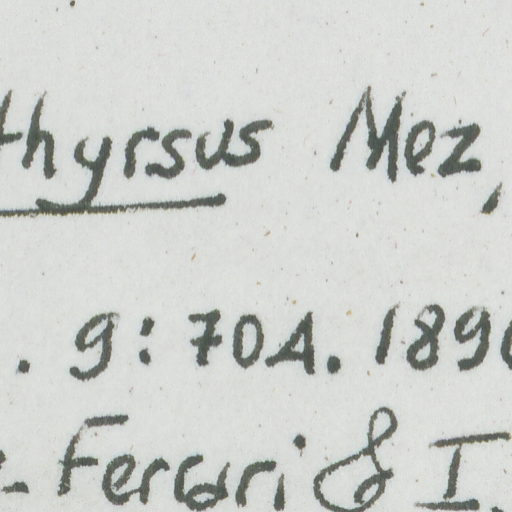 thyrsus Mez,
. 9: 704. 1896
- Ferrari & I.